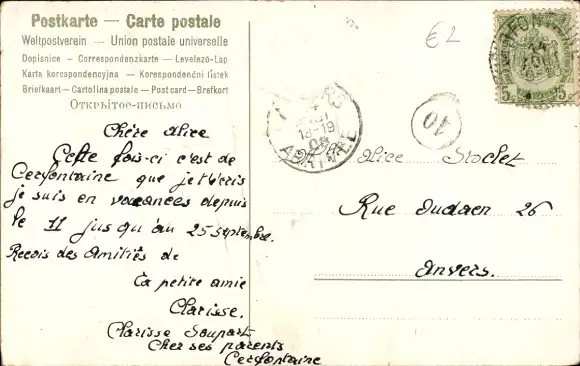 Postkarte — Carte postale
Weltpostverein — Union postale universelle
Dopisnice - Correspondenzkarte - Levelező-Lap
Karta korespondencyjna - Korespondenční lístek
Briefkaart - Cartolina postale - Post card - Brefkort
Открытое-письмо
Chère Alice
Cette fois-ci c'est de
Cerfontaine que je t'écris
je suis en vacances depuis
le 11 jusqu'au 25 septembre.
Recois des Amitiés de
Ta petite amie
Clarisse.
Clarisse Soupart
Cher ses parents
Cerfontaine
€2
RFONTAI
14
5 5
4
18-19
08
40
Alice Stoclet
Rue Oudaen 26
Anvers.